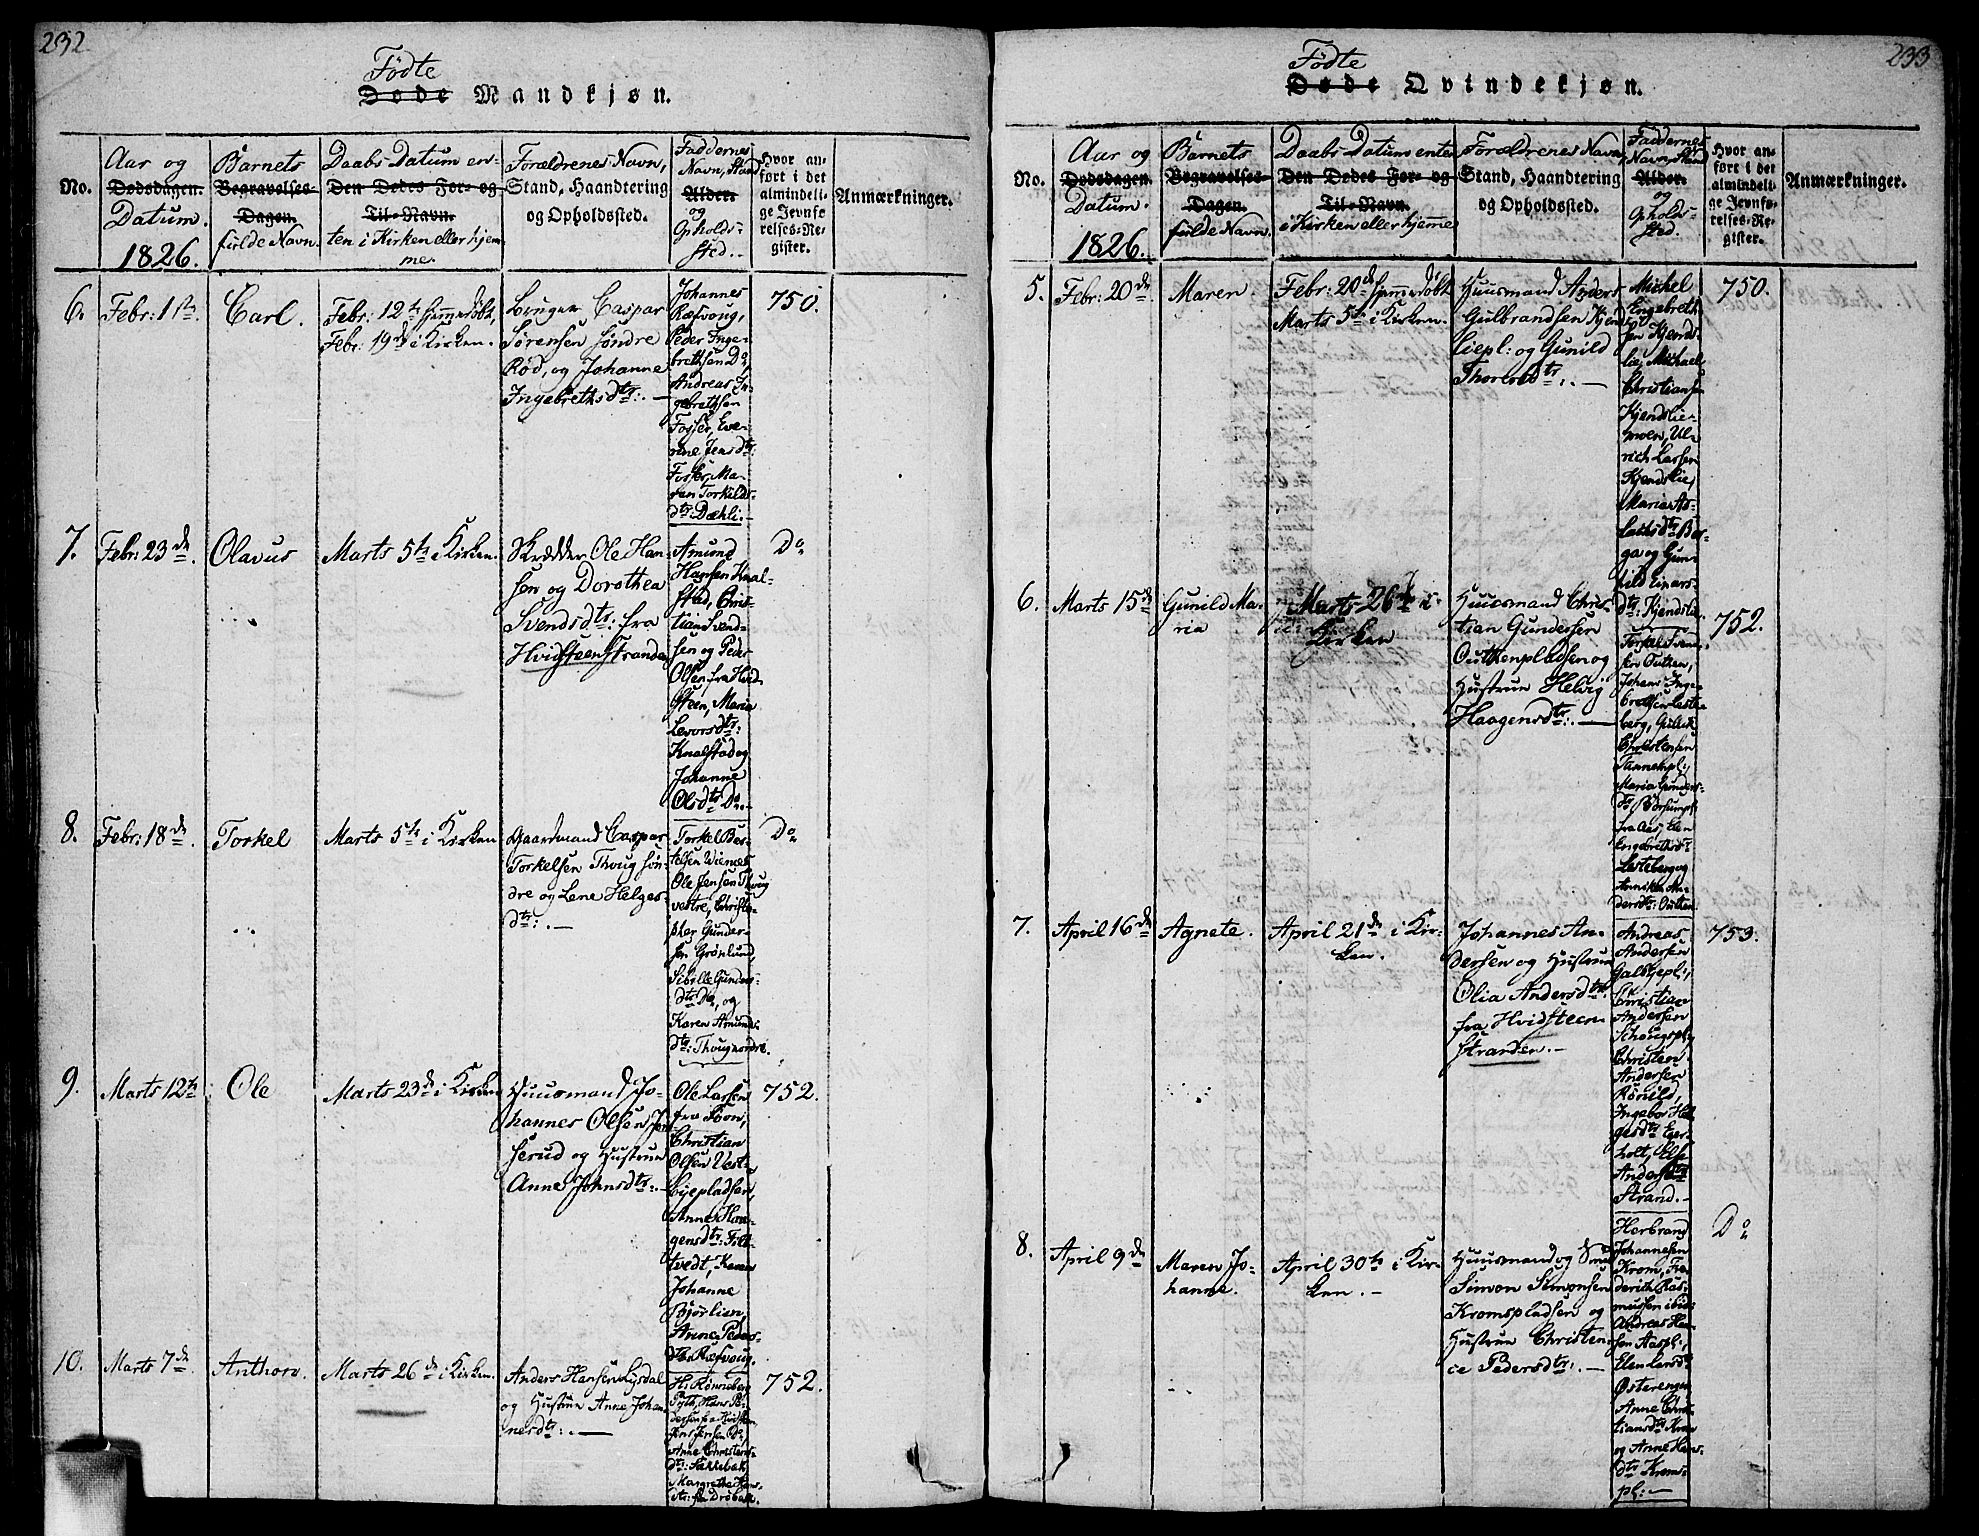 232.
Fødte
Døde Mandkjøn.
No.
Aar og
Dødsdagen.
Datum.
1826.
Barnets
Begravelses-
Dagen.
fulde Navn.
Daabs-Datum en-
Den Dødes For- og
Til-Navn.
ten i Kirken eller hjem-
me.
Forældrenes Navn,
Stand, Haandtering
og Opholdssted.
Faddernes
Navn, Stand
Alder.
og
Opholds-
sted.
Hvor an-
ført i det
almindeli-
ge Jevnfø-
relses-Re-
gister.
Anmærkninger.
6.
Febr: 1ste
Carl.
Febr: 12te hjemmedøbt,
Febr: 19de i Kirken.
Caspar
Sørensen Søndre
Rød, og Johanne
Ingebrethsdtr:
Johannes
Ræfvoug,
Peder Inge-
brethsen Do
Andreas In-
gebrethsen
Fosser, Eve-
rine Jensdtr
Fosser, Ma-
ren Torkilds-
dtr Dæhli.
750.
7.
Febr: 23de
Olavus
Marts 5te i Kirken.
Skrædder Ole Han-
sen og Dorothea
Svendsdtr: fra
Hvidsteen Stranden
Amund
Hansen Knal-
stad, Chris-
tian Svend-
sen og Peder
Olsen fra Hvid-
steen, Maria
Levorsdtr:
Knalstad og
Johanne
Olsdtr Do
Do
8.
Febr: 18de
Torkel
Marts 5te i Kirken
Gaardmand Caspar
Torkelsen Thoug søn-
dre og Lene Helges-
dtr:
Torkel
Ole Jensen Thoug
vestre, Christo-
pher Gunder-
sen Grønlund,
Sibille Gunders-
dtr Do, og
Karen Amunds-
dtr: Thoug nordre.
Do
9.
Marts 12te
Ole
Marts 23de i Kirken
Huusmand Jo-
hannes Olsen
og Hustrue
Anne Johnsdtr:
Ole Larsen
fra
Christian
Olsen Vest-
byepladsen,
Anne
gensdtr:
tvedt, Karen
Johanne
Bjørlien,
Anne Peders-
dtr Ræfvoug.
752.
10.
Marts 7de
Anthon.
Marts 26de i Kirken.
Anders Hansen
og Hustrue Anne Johan-
nesdtr:
Hr. Rønneberg
Hans Pe-
dersen fra Hvidsteen
Jens Jensen Do
Anne Christens-
dtr:
Margrethe Hans-
dtr: fra Drøbak.
752.
233
Fødte
Døde Qvindekjøn.
No.
Aar og
Dødsdagen.
Datum.
1826.
Barnets
Begravelses-
Dagen.
fulde Navn.
Daabs Datum enten
Den Dødes For- og
Til-Navn.
i Kirken eller hjemme
Forældrenes Navn,
Stand, Haandtering
og Opholdssted.
Faddernes
Navn, Stand
Alder.
og
Ophold-
sted.
Hvor an-
ført i det
almindeli-
ge Jevnfø-
relses-Re-
gister.
Anmærkninger.
5.
Febr: 20de
Maren
Febr: 20de hjemmedøbt
Marts 5te i Kirken.
Huusmand Anders
Gulbrandsen Kjend
liepl: og Gunild
Thorersdtr:.
Michel
Engebreth
sen Kjends-
lie, Michael
Christiansen
Kjendslie-
moen, Ul-
rich Larsen
Kjendslie,
Maria As-
laksdtr Ber-
ga og Gun-
hild Einars-
dtr: Kjendslie
750.
6.
Marts 15de
Gunild Ma-
ria
Marts 26de i
Kirken
Huusmand Chris-
tian Gundersen
Outhenpladsen og
Hustrue Helvig
Haagensdtr:
Outhen,
Johans Inge-
brethsen Laste
berg, Gulbr
Christensen
Maria Gunders-
dtr
fra Aas, Elen
Engebrethsdtr
Lasteberg og
Anniken An-
dersdtr: Outhen
752.
7.
April 16de
Agnete.
April 21de i Kir-
ken.
Johannes An-
dersen og Hustrue
Olia Andersdtr:
fra Hvidsteen-
Stranden.
Andreas
Andersen
Galbyepl:,
Christian
Andersen
Christen
Andersen
Rønild,
Ingebor Hel-
gesdtr Eger-
holt, Else
Andersdtr
Strand.
753.
8.
April 9de
Maren Jo-
hanne.
April 30te i Kir-
ken.
Huusmand og Smed
Simon Simonsen
Kromspladsen og
Hustrue Christen-
ce Pedersdtr:
Herbrand
Johannesen
Krom, Fre-
derich Ras-
mussen ibid:
Andreas Han-
sen Aaspl:,
Elen Larsdtr
Østerengen
Anne Chris-
tiansdtr Krom
og Anne Hans-
dtr Kroms-
pl:
Do